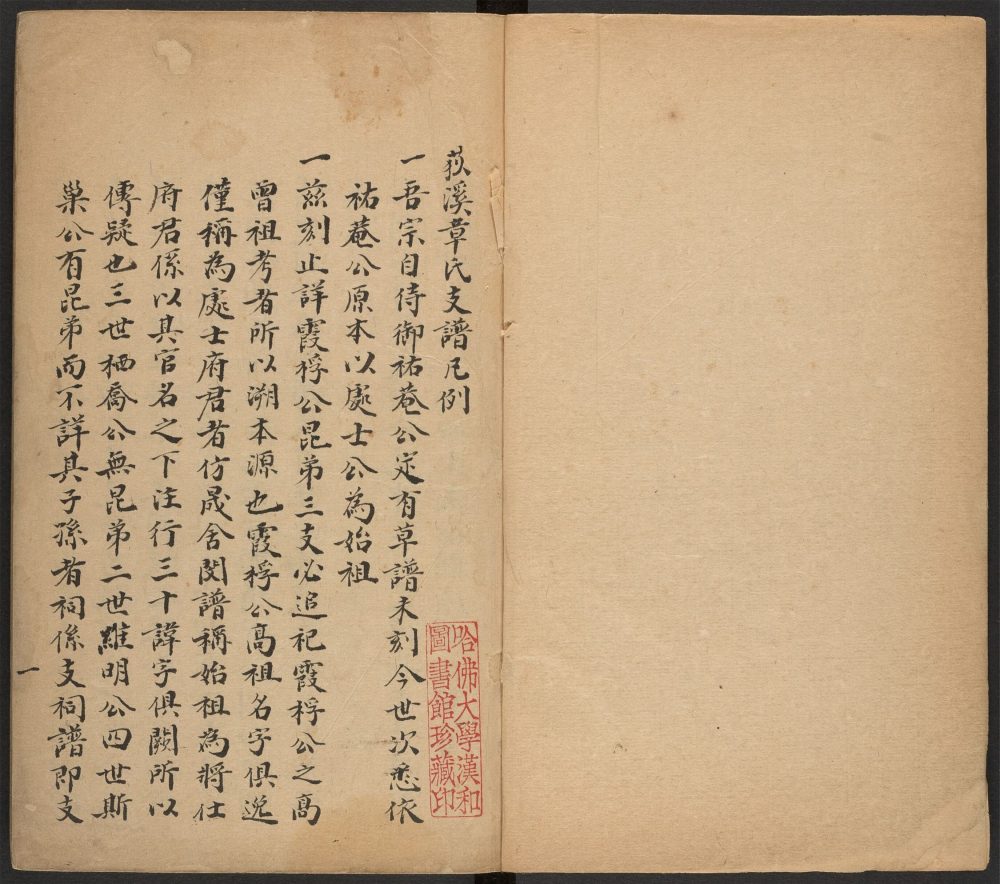 荻溪章氏支譜凡例
一吾宗自侍御祐菴公定有草譜未刻今世次悉依
祐菴公原本以處士公為始祖
一茲刻止詳霞桴公昆弟三支必追祀霞桴公之高
曾祖考者所以溯本源也霞桴公高祖名字俱逸
僅稱為處士府君者仿晟舍閔譜稱始祖為將仕
府君係以其官名之下注行三十諱字俱闕所以
傳疑也三世栖喬公無昆弟二世維明公四世斯
巢公有昆弟而不詳其子孫者祠係支祠譜即支
一
哈佛大學漢和
圖書館珍藏印